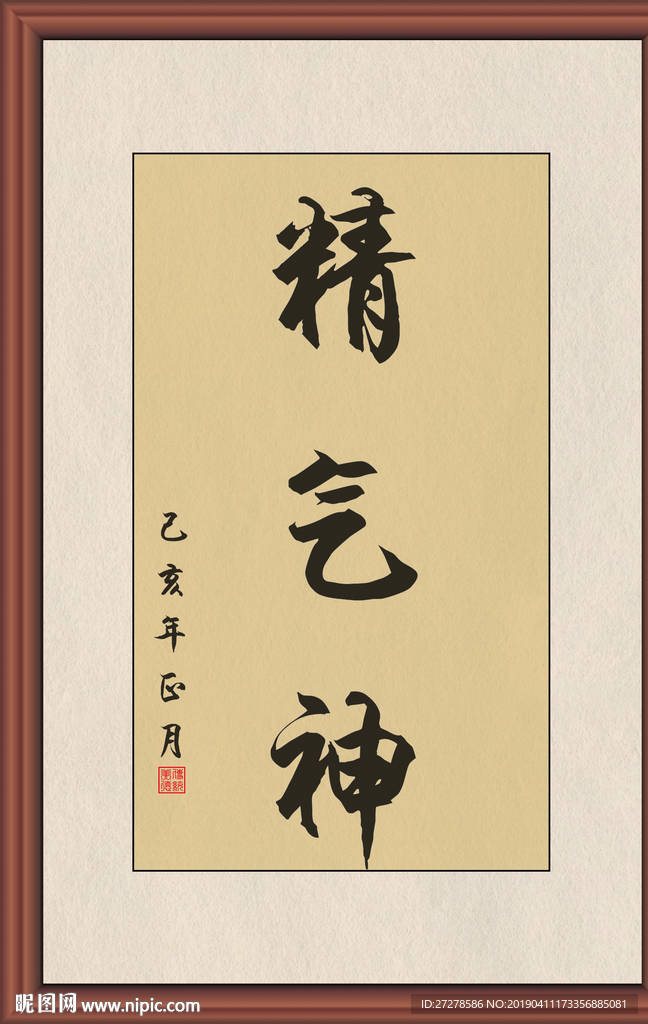 精气神
己亥年正月
傳統美德
昵图网 www.nipic.com
ID:27278586 NO:20190411173356885081